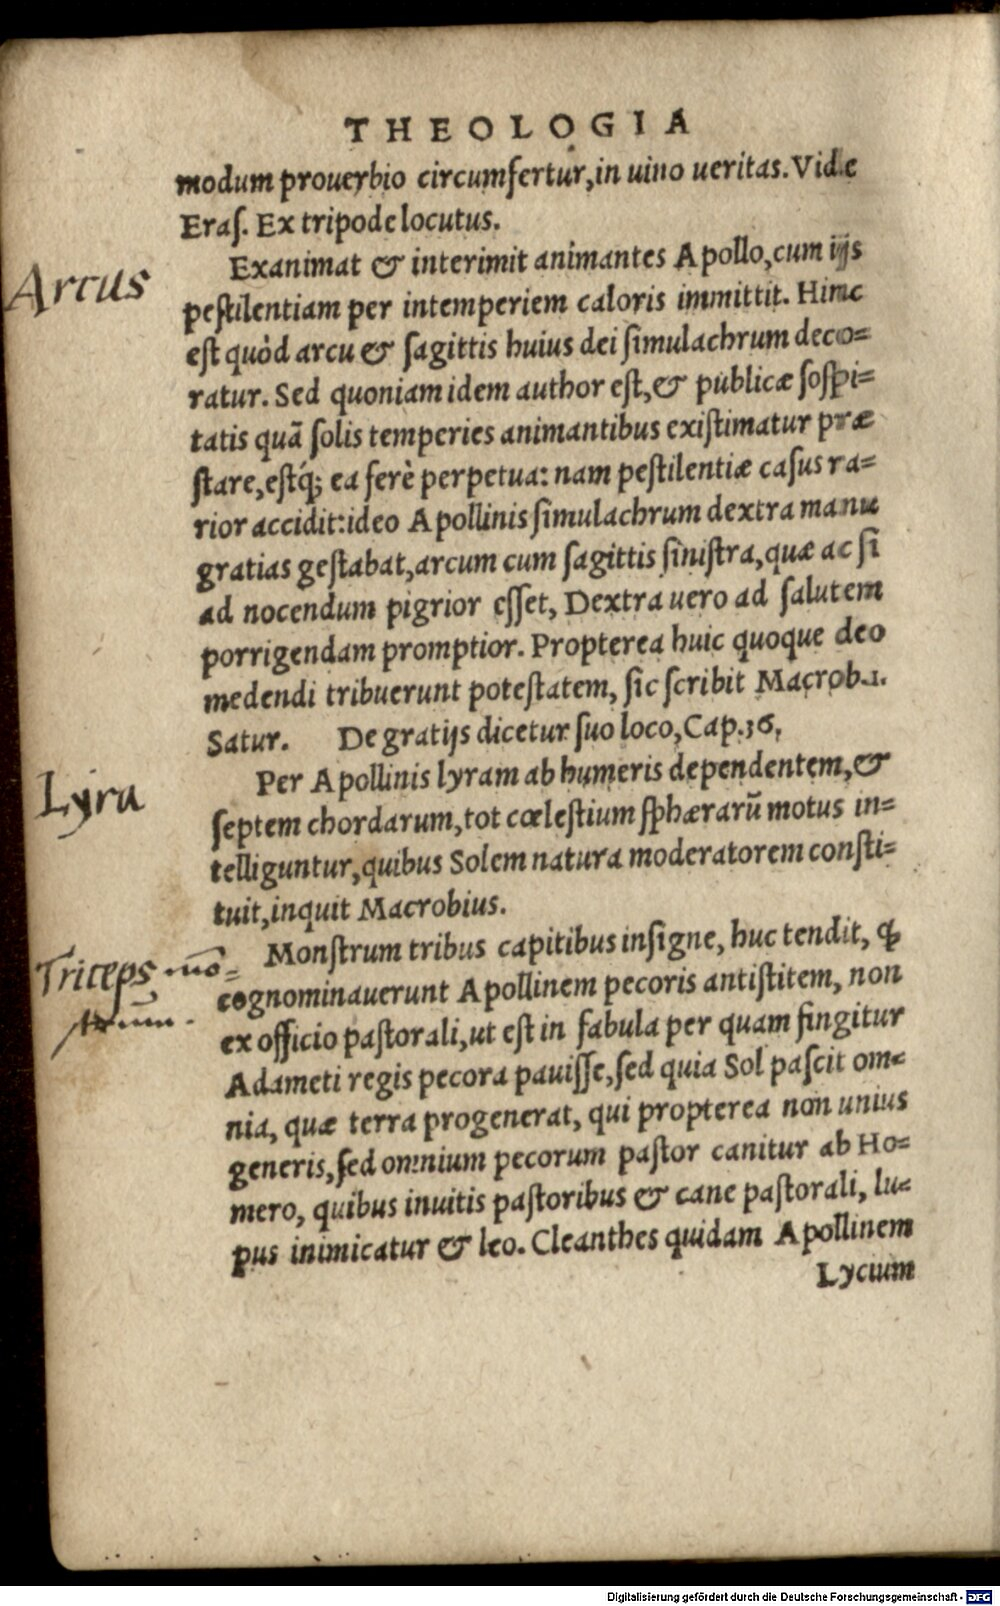 THEOLOGIA
modum prouerbio circumfertur, in uino ueritas. Vide
Eraſ. Ex tripode locutus.
Arcus
Exanimat & interimit animantes Apollo, cum ijs
peſtilentiam per intemperiem caloris immittit. Hinc
eſt quòd arcu & ſagittis huius dei ſimulachrum deco=
ratur. Sed quoniam idem author eſt, & publicæ ſoſpi=
tatis quā ſolis temperies animantibus exiſtimatur præ
ſtare, eſtq́; ea ferè perpetua: nam peſtilentiæ caſus ra=
rior accidit: ideo Apollinis ſimulachrum dextra manu
gratias geſtabat, arcum cum ſagittis ſiniſtra, quæ ac ſi
ad nocendum pigrior eſſet, Dextra uero ad ſalutem
porrigendam promptior. Propterea huic quoque deo
medendi tribuerunt poteſtatem, ſic ſcribit Macrob. 1.
Satur. De gratijs dicetur ſuo loco, Cap. 36.
Lyra
Per Apollinis lyram ab humeris dependentem, &
ſeptem chordarum, tot cœleſtium ſphærarū motus in=
telliguntur, quibus Solem natura moderatorem conſti=
tuit, inquit Macrobius.
Triceps mō=
ſtrum.
Monſtrum tribus capitibus inſigne, huc tendit, ꝙ
cognominauerunt Apollinem pecoris antiſtitem, non
ex officio paſtorali, ut eſt in fabula per quam fingitur
Adameti regis pecora pauiſſe, ſed quia Sol paſcit om=
nia, quæ terra progenerat, qui propterea non unius
generis, ſed omnium pecorum paſtor canitur ab Ho=
mero, quibus inuitis paſtoribus & cane paſtorali, lu=
pus inimicatur & leo. Cleanthes quidam Apollinem
Lycium
Digitalisierung gefördert durch die Deutsche Forschungsgemeinschaft - DFG